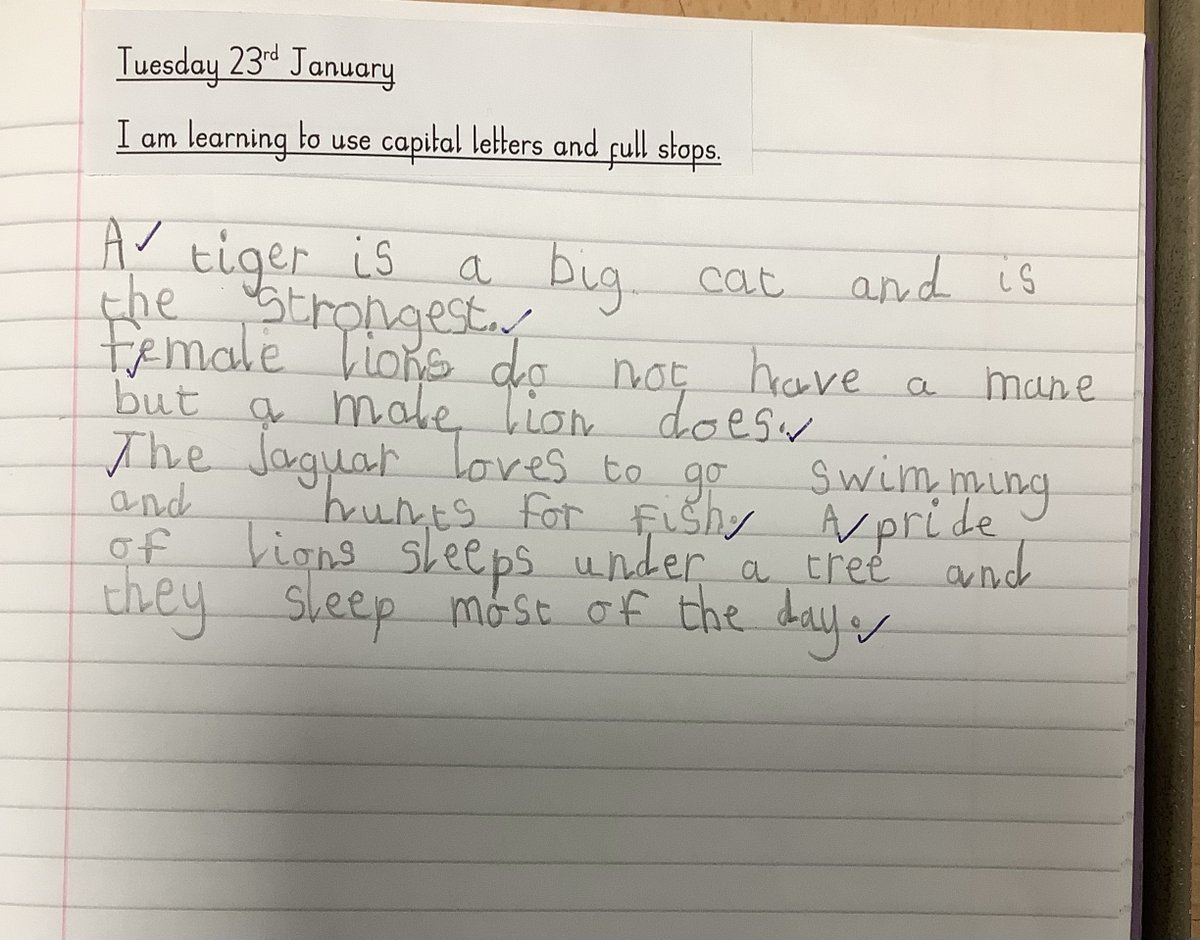 Tuesday 23rd January
I am learning to use capital letters and full stops.
A tiger is a big cat and is
the strongest.
Female lions do not have a mane
but a male lion does.
The jaguar loves to go swimming
and hunts for fish. A pride
of lions sleeps under a tree and
they sleep most of the day.